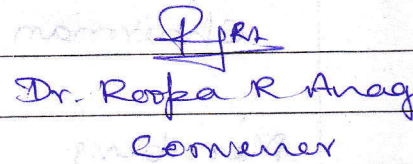 Dr. Roopa R Anag
Convener